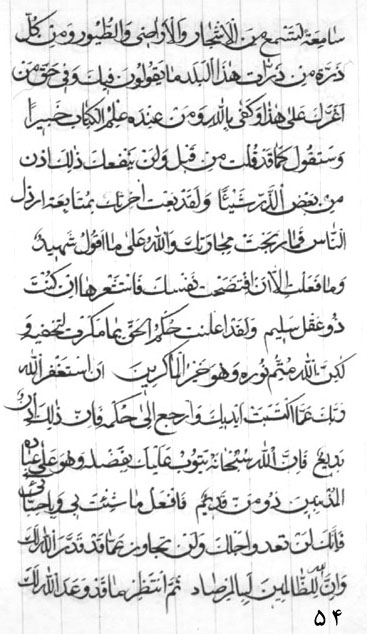 سامعة لتسمع من الاشجار والاراضي والطيور ومن كل
ذرة من ذرات هذا البلد ما يقولون فيك وفي حق من
اغرك على هذا وكفى بالله ومن عنده علم الكتاب خبيرا
وستقول كما قد قلت من قبل ولن ينفعك ذلك اذن
من بعض الذر شيئا ولقد بعت اخرتك بمتابعة ارذل
الناس فما ربحت تجارتك والله على ما اقول شهيد
وما فعلت الا ان افتضحت نفسك فاستشعرها ان كنت
ذو عقل سليم ولقد اعلنت حكم الحق بما مكرت لتخفيه و
لكن الله متم نوره وهو خير الماكرين ان استغفر الله
ربك عما اكتسبت ايديك وارجع الى حكمه فان ذلك
بديع فان الله سبحانه يتوب عليك بفضله وهو على عباده
المذنبين ذو من قديم فافعل ما شئت بي وباحبائي
فانك لن تعدو اجلك ولن تجاوز عما قد قدر الله لك
وان الله للظالمين لبالمرصاد ثم انتظر ما قد وعد الله لك
۵۴